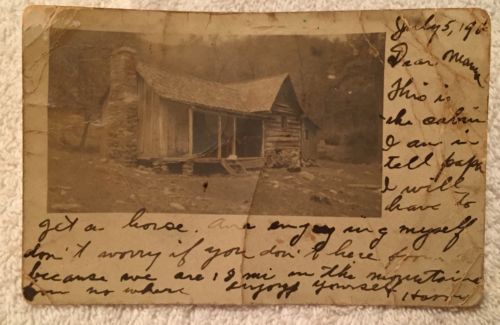 July 5, 190
Dear Mama
This is
the cabin
I am in
tell papa
I will
have to
get a horse. Am enjoying myself
don't worry if you don't here from
because we are 18 mi in the mountains
from no where enjoy yourself Harry